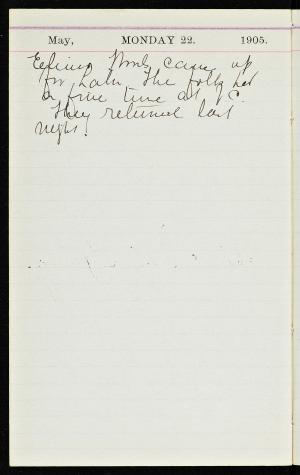 May, MONDAY 22. 1905.
came up
for The folks had
a fine time at C.
They returned last
night.